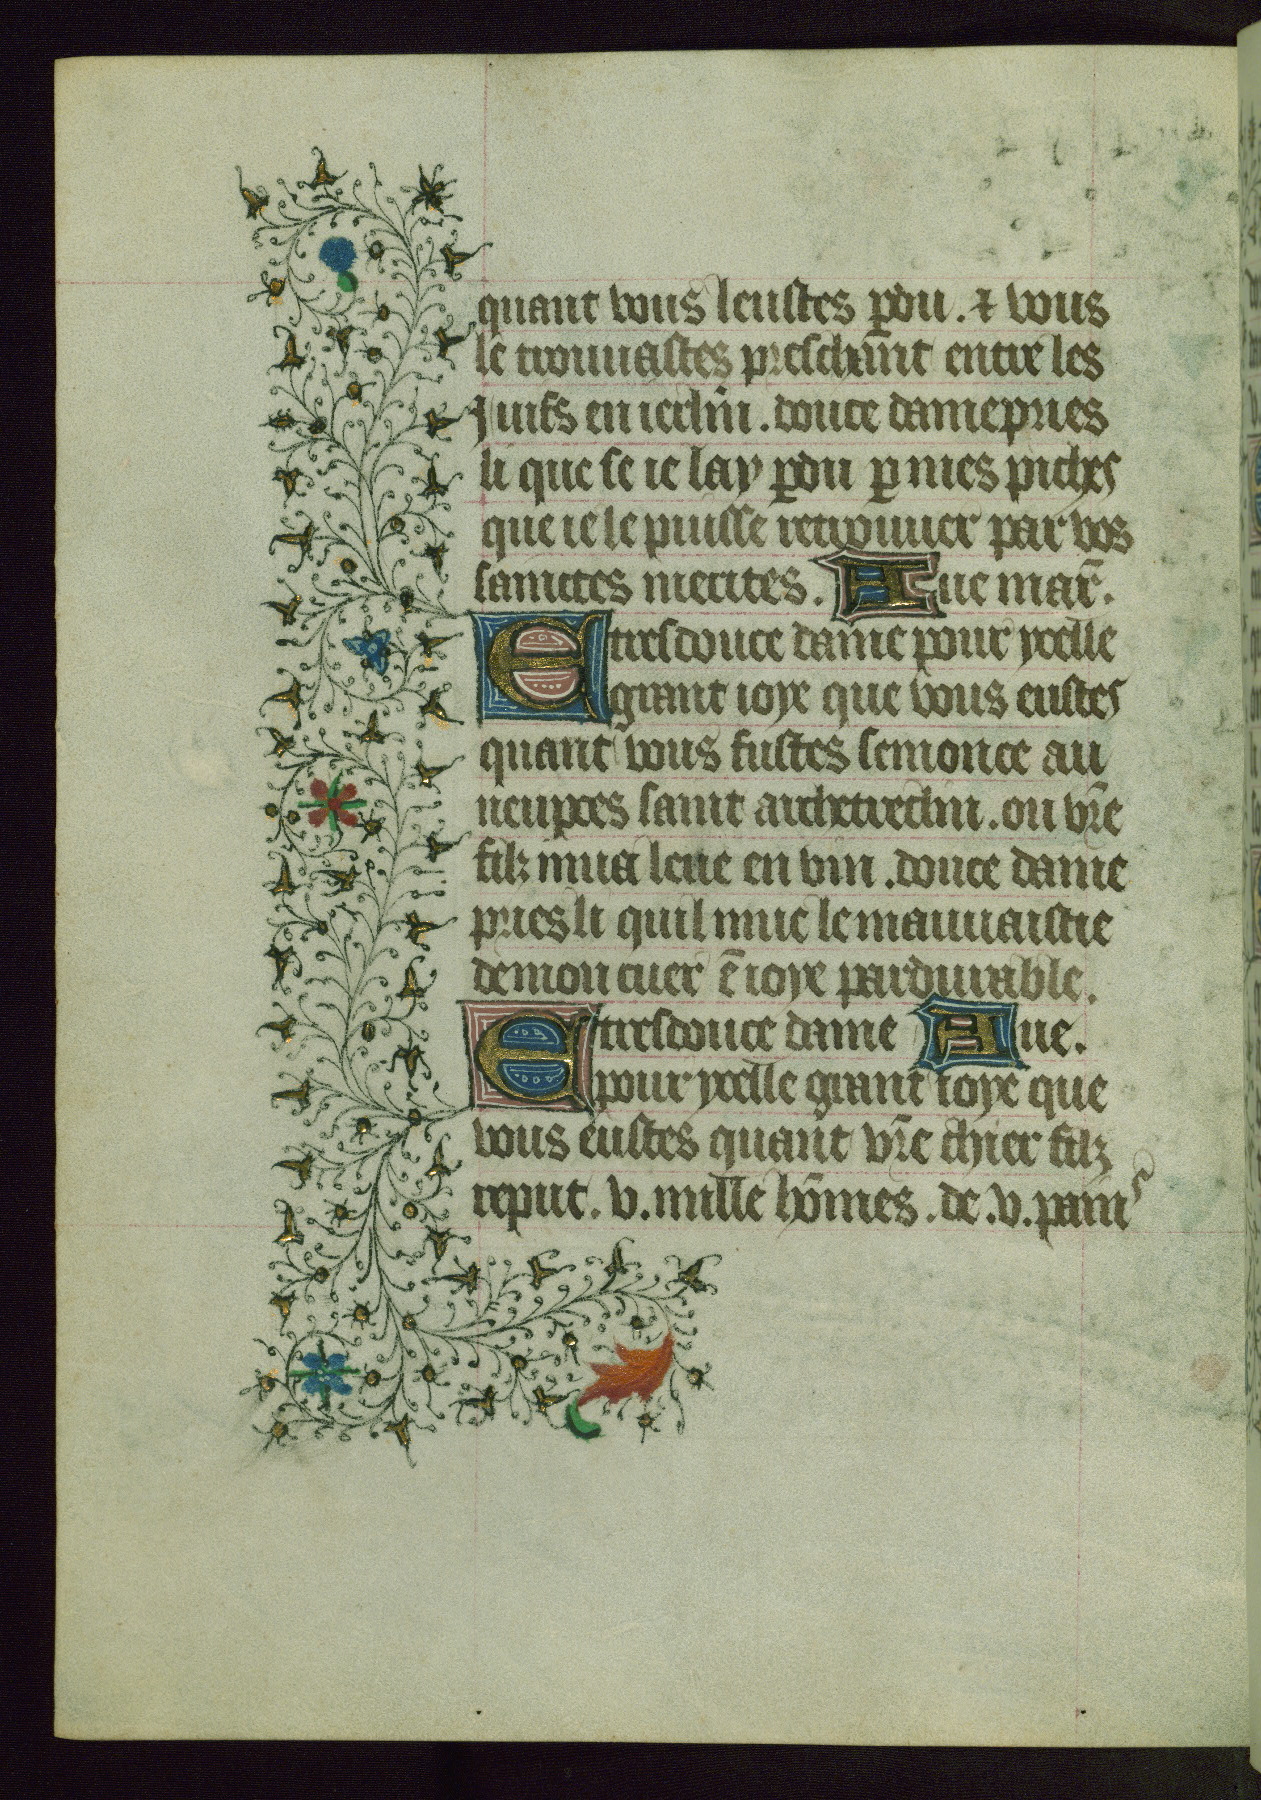 quant vous leustes ꝑdu . ⁊ vous
le trouuastes preschant entre les
Juifs en iecľm . douce dame pries
li que se ie lay ꝑdu ꝑ mes pichies
que ie le puisse retrouuer par vos
sainctes merites . Aue mar̃.
E tresdouce dame pour ycelle
grant ioye que vous eustes
quant vous fustes semonce au
neupces saint architreclin . ou vr̃e
filz mua leue en vin . douce dame
pries li quil mue le mauuaistie
de mon cuer ẽ ioye pardurable .
E tresdouce dame Aue.
pour ycelle grant ioye que
vous eustes quant vr̃e chier filz
reput . v . mille hõmes . de . v . pains